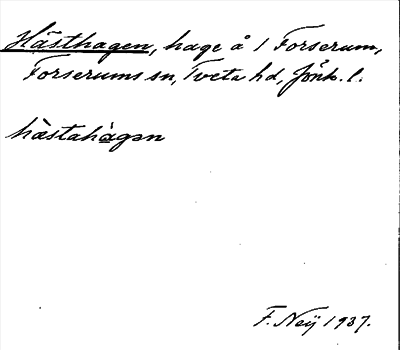 Hästhagen, hage å 1 Forserum,
Forserums sn, Tveta hd, Jönk. l.
hàstahàgən
F. Neÿ 1937.